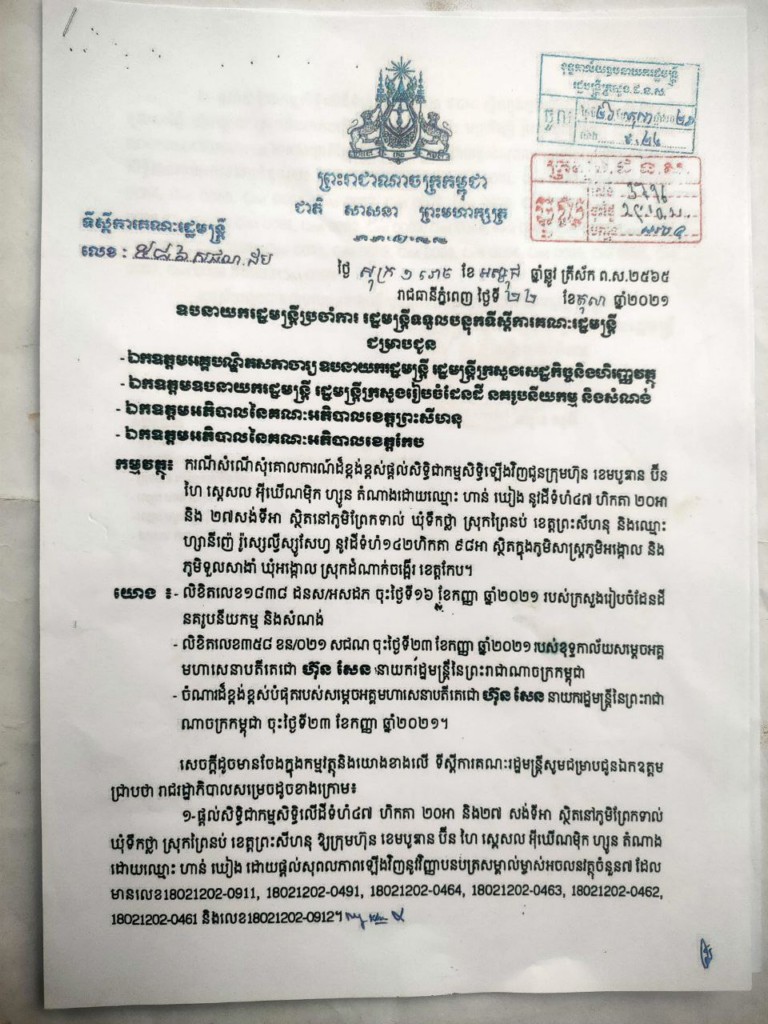 ព្រះរាជាណាចក្រកម្ពុជា
ជាតិ សាសនា ព្រះមហាក្សត្រ
ទីស្តីការគណៈរដ្ឋមន្ត្រី
លេខ :
ថ្ងៃ សុក្រ ១ រោច ខែ អស្សុជ ឆ្នាំឆ្លូវ ត្រីស័ក ព.ស.២៥៦៥
រាជធានីភ្នំពេញ ថ្ងៃទី ២២ ខែតុលា ឆ្នាំ២០២១
ឧបនាយករដ្ឋមន្ត្រីប្រចាំការ រដ្ឋមន្ត្រីទទួលបន្ទុកទីស្តីការគណៈរដ្ឋមន្ត្រី
ជម្រាបជូន
- ឯកឧត្តមអគ្គបណ្ឌិតសភាចារ្យឧបនាយករដ្ឋមន្ត្រី រដ្ឋមន្ត្រីក្រសួងសេដ្ឋកិច្ចនិងហិរញ្ញវត្ថុ
- ឯកឧត្តមឧបនាយករដ្ឋមន្ត្រី រដ្ឋមន្ត្រីក្រសួងរៀបចំដែនដី នគរូបនីយកម្ម និងសំណង់
- ឯកឧត្តមអភិបាលនៃគណៈអភិបាលខេត្តព្រះសីហនុ
- ឯកឧត្តមអភិបាលនៃគណៈអភិបាលខេត្តកែប
កម្មវត្ថុ៖ ករណីសំណើសុំគោលការណ៍ដ៏ខ្ពង់ខ្ពស់ផ្តល់សិទ្ធិជាកម្មសិទ្ធិឡើងវិញជូនក្រុមហ៊ុន ខេមបូឌាន ប៊ីន
ហៃ ស្តេសល អ៊ីឃើណម៉ិក ហ្សូន តំណាងដោយឈ្មោះ ហាន់ ឃៀង នូវដីទំហំ៤៧ ហិកតា ២០អា
និង ២៧សង់ទីអា ស្ថិតនៅភូមិព្រែកទាល់ ឃុំទឹកថ្លា ស្រុកព្រៃនប់ ខេត្តព្រះសីហនុ និងឈ្មោះ
ហ្យានីញ៉េ រ៉ូស្សេល្វីស្សូសែហ្វ នូវដីទំហំ១៤២ហិកតា ៩៨អា ស្ថិតក្នុងភូមិសាស្ត្រភូមិអង្កោល និង
ភូមិទួលសាងាំ ឃុំអង្កោល ស្រុកដំណាក់ចង្អើរ ខេត្តកែប។
យោង ៖- លិខិតលេខ១៨៣៨ ដនស/អសដក ចុះថ្ងៃទី១៦ ខែកញ្ញា ឆ្នាំ២០២១ របស់ក្រសួងរៀបចំដែនដី
នគរូបនីយកម្ម និងសំណង់
- លិខិតលេខ៣៥៨ ខន/០២១ សជណ ចុះថ្ងៃទី២៣ ខែកញ្ញា ឆ្នាំ២០២១ របស់ខុទ្ទកាល័យសម្តេចអគ្គ
មហាសេនាបតីតេជោ ហ៊ុន សែន នាយករដ្ឋមន្ត្រីនៃព្រះរាជាណាចក្រកម្ពុជា
- ចំណារដ៏ខ្ពង់ខ្ពស់បំផុតរបស់សម្តេចអគ្គមហាសេនាបតីតេជោ ហ៊ុន សែន នាយករដ្ឋមន្ត្រីនៃព្រះរាជា
ណាចក្រកម្ពុជា ចុះថ្ងៃទី២៣ ខែកញ្ញា ឆ្នាំ២០២១។
សេចក្តីដូចមានចែងក្នុងកម្មវត្ថុនិងយោងខាងលើ ទីស្តីការគណៈរដ្ឋមន្ត្រីសូមជម្រាបជូនឯកឧត្តម
ជ្រាបថា រាជរដ្ឋាភិបាលសម្រេចដូចខាងក្រោម៖
១-ផ្តល់សិទ្ធិជាកម្មសិទ្ធិលើដីទំហំ៤៧ ហិកតា ២០អា និង២៧ សង់ទីអា ស្ថិតនៅភូមិព្រែកទាល់
ឃុំទឹកថ្លា ស្រុកព្រៃនប់ ខេត្តព្រះសីហនុ ឱ្យក្រុមហ៊ុន ខេមបូឌាន ប៊ីន ហៃ ស្តេសល អ៊ីឃើណម៉ិក ហ្សូន តំណាង
ដោយឈ្មោះ ហាន់ ឃៀង ដោយផ្តល់សុពលភាពឡើងវិញនូវវិញ្ញាបនបត្រសម្គាល់ម្ចាស់អចលនវត្ថុចំនួន៧ ដែល
មានលេខ18021202-0911, 18021202-0491, 18021202-0464, 18021202-0463, 18021202-0462,
18021202-0461 និងលេខ18021202-0912។